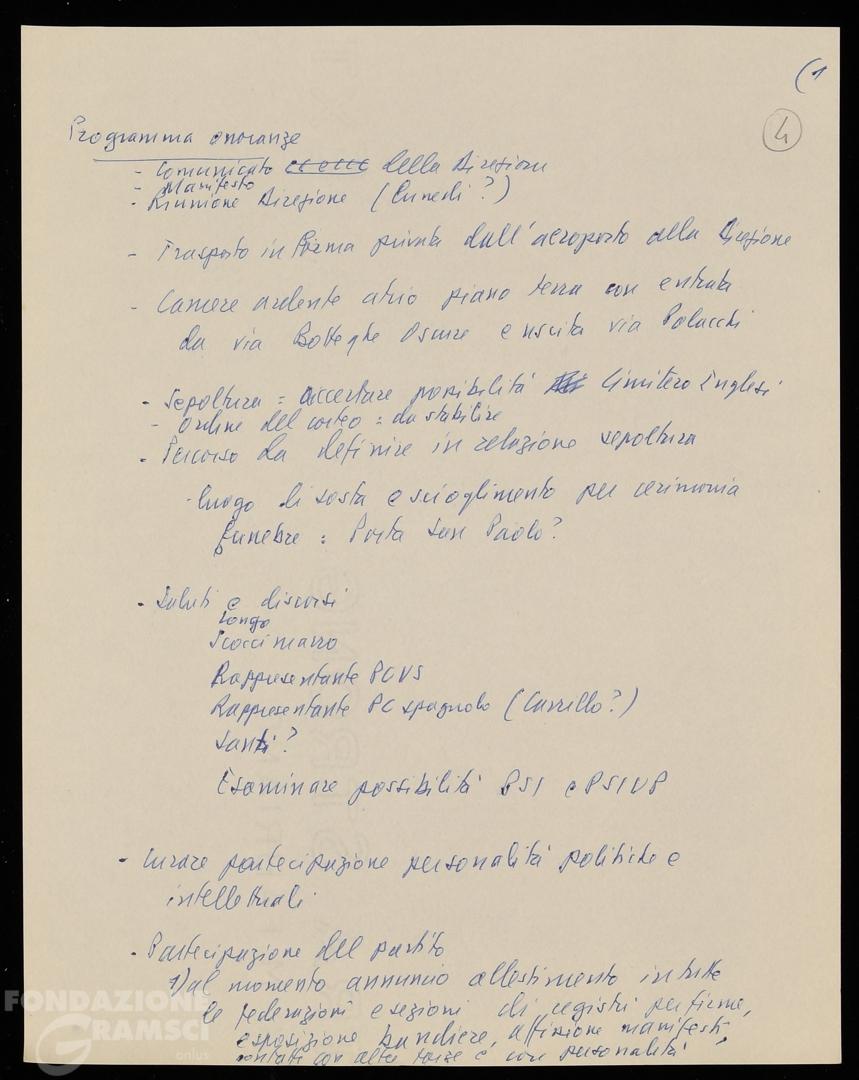 (1
4
Programma onoranze
- Comunicato della Direzione
- Manifesto
- Riunione Direzione (Lunedì?)
- Trasporto in forma privata dall'aeroporto alla Direzione
- Camera ardente atrio piano terra con entrata
da via Botteghe Oscure e uscita via Polacchi
- Sepoltura = accertare possibilità Cimitero Inglesi
- ordine del corteo = da stabilire
- Percorso da definire in relazione sepoltura
- luogo di sosta e scioglimento per cerimonia
funebre = Porta San Paolo?
- Saluti e discorsi
Longo
Scoccimarro
Rappresentante PCUS
Rappresentante PC spagnolo (Carrillo?)
Santi?
Esaminare possibilità PSI e PSIUP
- Curare partecipazione personalità politiche e
intellettuali
- Partecipazione del partito
1) al momento annuncio allestimento in tutte
le federazioni e sezioni di registri per firme,
esposizione bandiere, affissione manifesti
contatti con altre forze e con personalità
FONDAZIONE
GRAMSCI
onlus